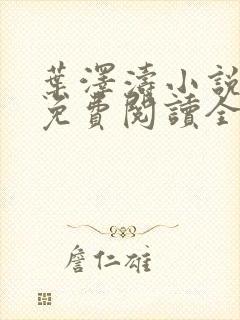 葉澤濤小說
免費閱讀全
詹仁雄